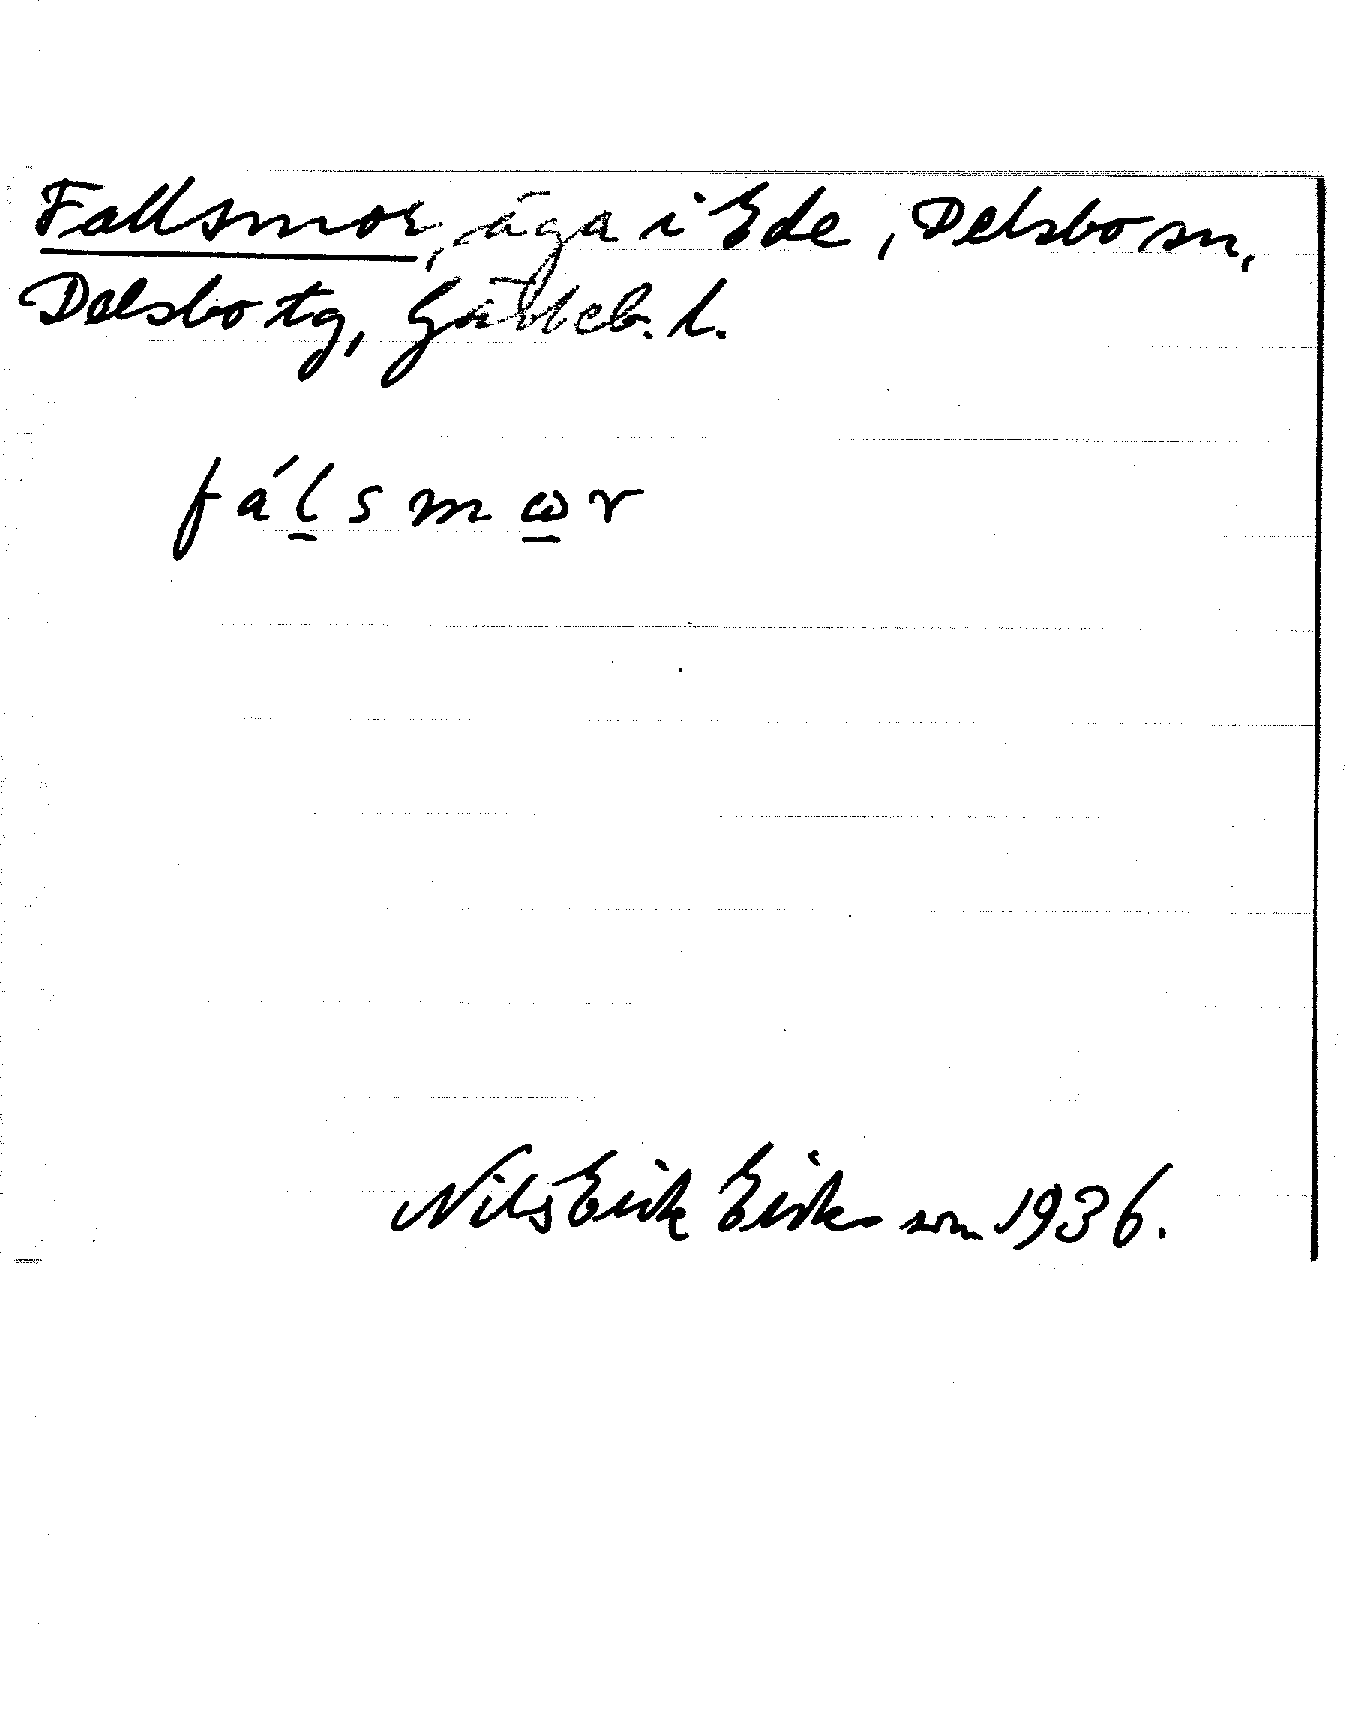 Fallsmor, äga i Ede, Delsbo sn,
Delsbo tg, Gävleb. l.
fá l̲ s m ω̲ r
Nils Erik Eriksson 1936.